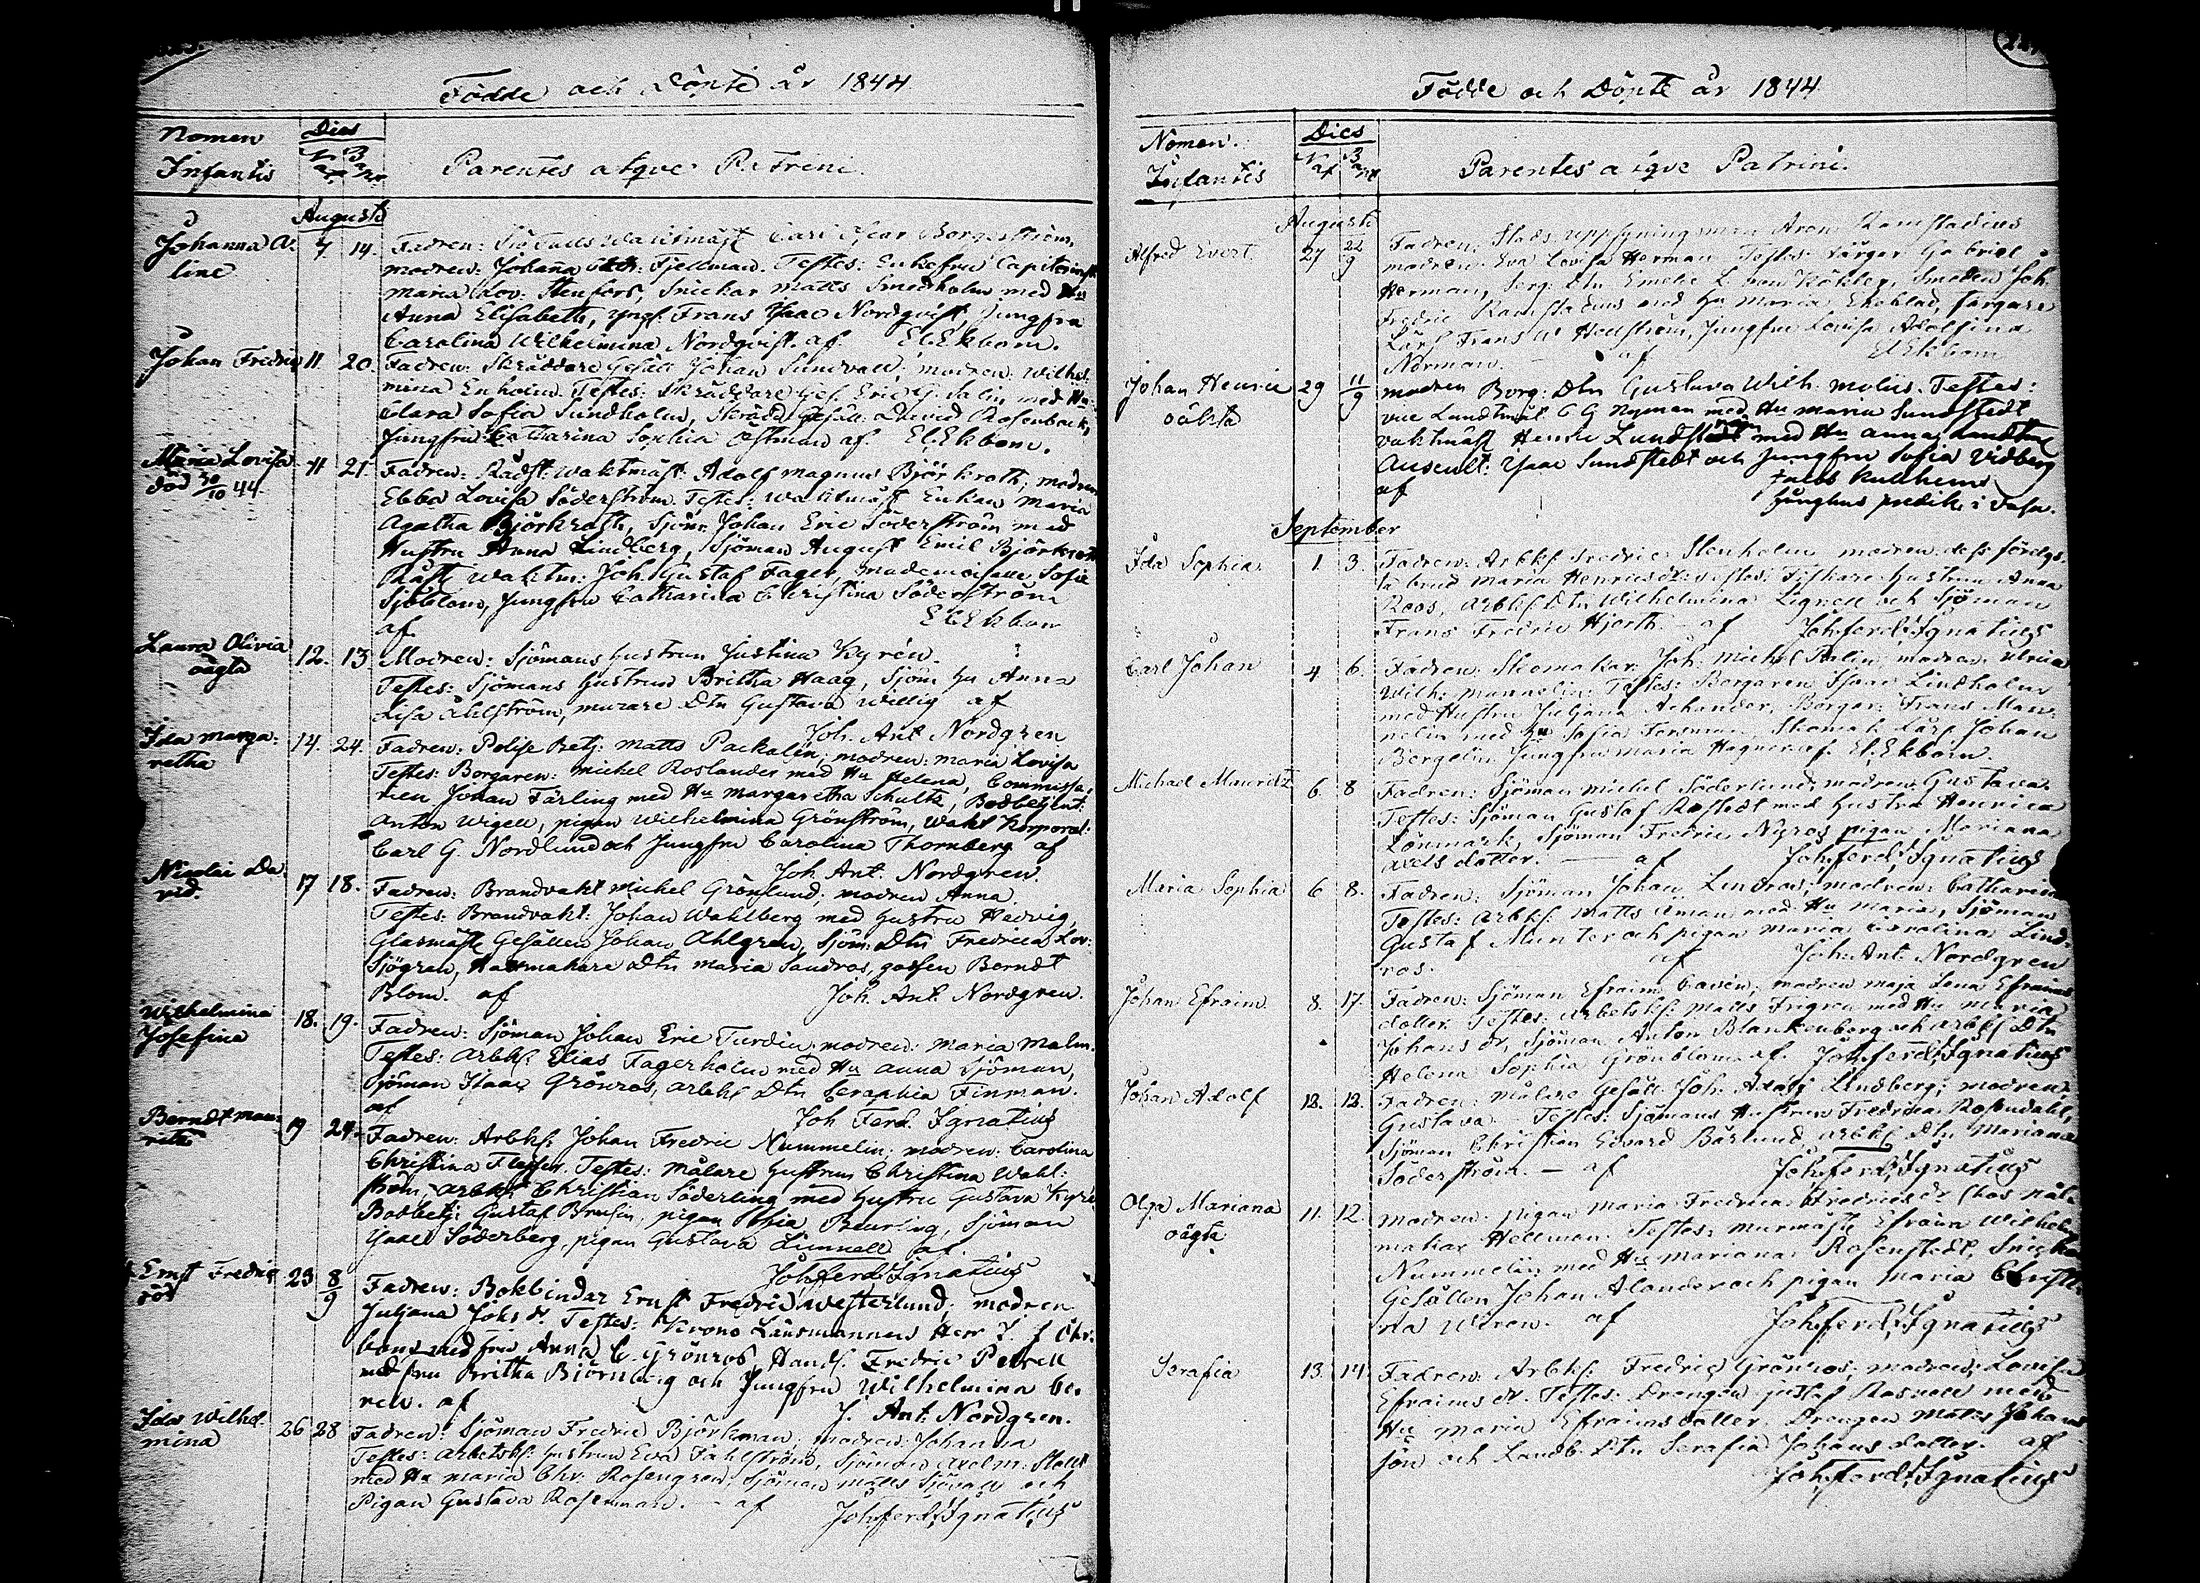 Födde och Döpte år 1844
Nomen Infantis
Dies
Nat Bapt
Parentes atque Patreni.
Augusti
Johanna Aline
7. 14.
Fadren: Wacktmäst Carl Borgström,
modren: Johanna Fjellman. Testes: Enkefru
Maria Lov. Stenfors, Snickar Matts Smedholm med Hu
Anna Elisabeth, yngl. Frans Isaac Nordqvist, Jungfru
Carolina Wilhelmina Nordqvist. af El. Ekbom.
Johan Fredric
11. 20.
Fadren: Skräddare Gesäll Johan Sundvall; modren: Wilhel-
mina Enholm. Testes: Skräddare Ges. Eric G. Salin med Hu
Clara Sofia Sundholm, Skrädd. Gesäll David Rosenback,
Jungfru Catharina Sophia Östman af. El. Ekbom.
Maria Lovisa
död 30/10 44
11 21.
Fadren: Rådst. Waktmäst. Adolf Magnus Björkroth; modren
Ebba Lovisa Söderström. Testes: Waktmäst Enkan Maria
Agatha Björkroth, Sjöm. Johan Eric Söderström med
Hustru Anna Lindberg, Sjöman August Emil Björkroth
Rådst. Waktm: Joh. Gustaf Fager, Mademoiselle Sofia
Sjöblom, Jungfru Catharina Christina Söderström
af El. Ekbom
Laura Olivia
oägta
12. 13
Modren: Sjömans Hustrun Justina Kyrén.
Testes: Sjömans Hustrun Britha Haag, Sjöm. Hu Anna
Lisa Åhlström, murare Dtn Gustava Willig af
Joh. Ant. Nordgren
Ida Marga-
retha
14. 24.
Fadren: Polise Betj: Matts Packalén; modren: Maria Lovisa
Testes: Borgaren: Michel Roslander med Hu Helena, Commissa-
rien Johan Färling med Hu Margaretha Schultz, Bodbetjent:
Anton Wigell, pigan Wilhelmina Grönström, Wakt Korporal:
Carl G. Nordlund och Jungfru Carolina Thornberg af
Joh. Ant. Nordgren
Nicolai Da-
vid.
17 18.
Fadren: Brandvakt Michel Grönlund; modren Anna.
Testes: Brandvakt: Johan Wahlberg med Hustru Hedvig,
Glasmäst. Gesällen Johan Ahlgren, Sjöm. Dtn Fredrica Lov:
Sjögren, Hattmakare Dtn Maria Sandros, gossen Berndt
Blom. af Joh. Ant. Nordgren.
Wilhelmina
Josefina
18. 19.
Fadren: Sjöman Johan Eric Turdin; modren: Maria Malm.
Testes: Arbkf. Elias Fagerholm med Hu Anna Sjöman,
Sjöman Isaac Grönros, Arbkf Dtn Seraphia Finman.
af Joh Ferd. Ignatius
Berndt Mau-
ritz
19 24.
Fadren: Arbkf. Johan Fredric Nummelin; modren: Carolina
Christina. Testes: Målare Hustrun Christina Wahl-
ström, Arbkf. Christian Söderling med Hustru Gustava
Bodbetj: Gustaf Brusin, pigan Sophia Beurling, Sjöman
Isael Söderberg, pigan Gustava Linnell af
Joh. Ferd. Ignatius
Ernst Fredric
död
23 8/9
Fadren: Bokbindar Ernst Fredric Westerlund; modren
Juljana Johs dr. Testes: Krono Länsmannen Herr J. f Öhr-
bom med fru Anna C. Grönros, Handl. Fredric Petrell
med fru Britha Björnberg och Jungfru Wilhelmina
af J. Ant. Nordgren.
Ida Wilhel-
mina
26 28
Fadren: Sjöman Fredric Björkman; modren: Johanna
Testes: Arbetskf: Hustrun Eva Fahlström, Sjöman
med Hu Maria Chr. Rosengren, Sjöman Matts Sjövall och
Pigan Gustava Rosenman. af Joh. Ferd. Ignatius
Födde och Döpte år 1844
Nomen Infantis
Dies
Nat Bapt
Parentes atqve Patrini.
Augusti
Alfred Evert
27 22/9
Fadren: Stads uppsyningsman Aron Ramstadius
modren: Eva Lovisa Herman Testes: färgar Gabriel
Herman, Serg: Dtn Emelie L. von Köhler, Smeden Joh.
Fredric Ramstadius med Hu Maria Ekeblad, färgare
Lärl Frans W Hellström, Jungfru Lovisa Adolfina
Norman. af El. Ekbom
Johan Henric
oäkta
29 11/9
modren Borg: Dtn Gustava Wilh. Molis. Testes:
vice Landtmät. C G Nyman med Hu Maria Sundstedt
vaktmäst Henric Lundstedt med Hu Anna
Auscult: Isaac Sundstedt och Jungfru Sofia Vidberg
af
Kullhem
predik: i Vasa.
September
Ida Sophia
1. 3.
Fadren: Arbkf: Fredric Stenholm modren dess förlofva-
de brud Maria Henricsdr: Testes: Fiskare Hustrun Anna
Roos, Arbkf. Dtn Wilhelmina Lignell och Sjöman
Frans Fredric Hjorth. af Joh. Ferd. Ignatius
Carl Johan
4 6.
Fadren: Skomakar Joh: Michel Palin, modren Ulrica
Wilh: Mannelin. Testes: Borgaren Isaac Lindholm
med Hustru Juljana Achander, Borgar: Frans Man-
nelin med Hu Sofia Forsman Skomak. Lärl Johan
Bergelin Jungfru Maria Hagner af. El. Ekbom.
Michael Mauritz
6 8
Fadren: Sjöman Michel Söderlund; modren Gustava
Testes: Sjöman Gustaf Rostedt med Hustru Henrica
Lönmark, Sjöman Fredric Nyros pigan Mariana
Axels dotter. af Joh. Ferd. Ignatius
Maria Sophia
6 8.
Fadren: Sjöman Johan Lindros; modren: Catharina
Testes: Arbkf. Matts Åman med Hu Maria, Sjöman
Gustaf Munter och pigan Maria Carolina Lind-
ros. af Joh. Ant. Nordgren
Johan Efraim
8. 17.
Fadren: Sjöman Efraim Cavén; modren Maja Lena Efraims
dotter. Testes: Arbetskf: Matts Frigren med Hu Maria
Johans dr, Sjöman Anton Blankenberg och Arbkf Dtn
Helena Sophia Grönblom. af. Joh. Ferd. Ignatius
Johan Adolf
12. 12.
Fadren: Målare Gesäll Joh: Adolf Lindberg; modren:
Gustava. Testes: Sjömans Hustrun Fredrica Rosendahl,
Sjöman Christian Edvard Bärlund, Arbkf Dtn Mariana
Söderström. — af Joh. Ferd. Ignatius
Olga Mariana
oägta
11. 12.
Modren: pigan Maria Fredrica Fredrics dr (hos nål-
makar Hellman. Testes: Murmäst. Efraim Wilhelm
Nummelin med Hu Mariana Rosenstedt, Snickar
Gesällen Johan Alander och pigan Maria Christi-
na Widen. af Joh. Ferd. Ignatius
Serafia
13. 14.
Fadren: Arbkf: Fredric Grönros; modren: Lovisa
Efraims dr. Testes: Drengen Gustaf Rosvall med
Hu Maria Efraims dotter. Drengen Matts Johans
son och Landb. Dtn Serafia Johans dotter. af
Joh. Ferd. Ignatius